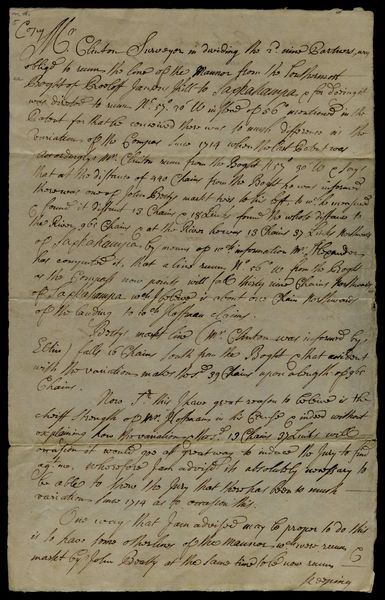 Copy Mr Clinton Surveyor in dividing the 2d. nine Partners, was
obliged to run the line of the Mannor from the Southermost
Bought of Roeloff Jansons kill to Saxkahampa, & for doing it
was directed to run No. 57o 30 W in stead of 56o mentioned in the
Patent for that he conceived there was so much difference in the
Variation of the Compass Since 1714 when the last Patent was
accordingly Mr Clinton run from the Bought N 57o 30 W & says
that at the distance of 440 Chains from the Bought he was informed
there was one of John Beatys markt trees to the left. to wch he measured
& found it distant 13 Chain & 18 Links found the whole distance to
the River 961 Chains & at the River he was 13 Chains 37 Links Northward
of Saxkahampa by means of wch information Mr Alexander
has computed it, that a line run No 56 W from the Bought
as the Compass now points will fall thirty nine Chains Northward
of Saxkahampa wch I believe is about one Chain Northward
of the Landing to wch Hoffman claims.
Beatys markt line (Mr Clinton was informed by
Elting) falls 16 Chains South from the Bought & that amount
with the variation makes the sd 39 Chains upon a length of 961
Chains.
Now Sr. this I have great reason to believe is the
cheiff strength of Mr Hoffmans in his Cause & indeed without
explaining how the variation & the sd. 13 Chains 37 Links will
occasion it would goe a great way to induce the Jury to find
agt. me, wherefore I am advised its absolutely necessary to
be able to show the Jury that there has been so much
variation since 1714 as to occasion this.
One way that I am advised may be proper to do this
is to have some other line of the Mannor wch were run &
markt by John Beaty at the same time to be now run,
keeping